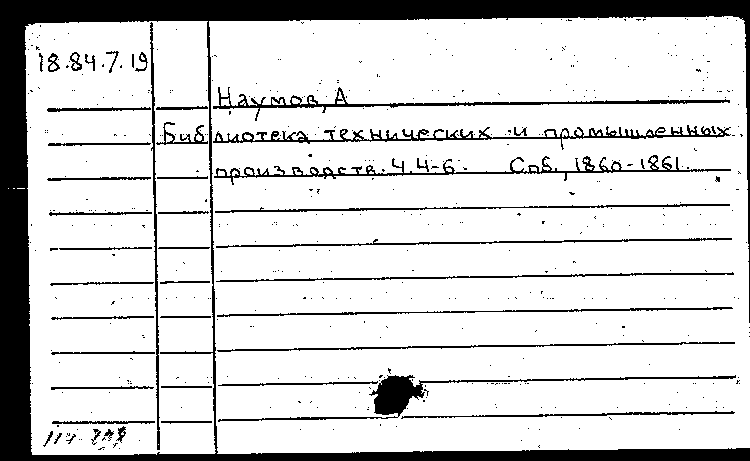 18.84.7.19
Наумов, А
Библиотека технических и промышленных
производств. Ч. 4-6. Спб., 1860-1861.